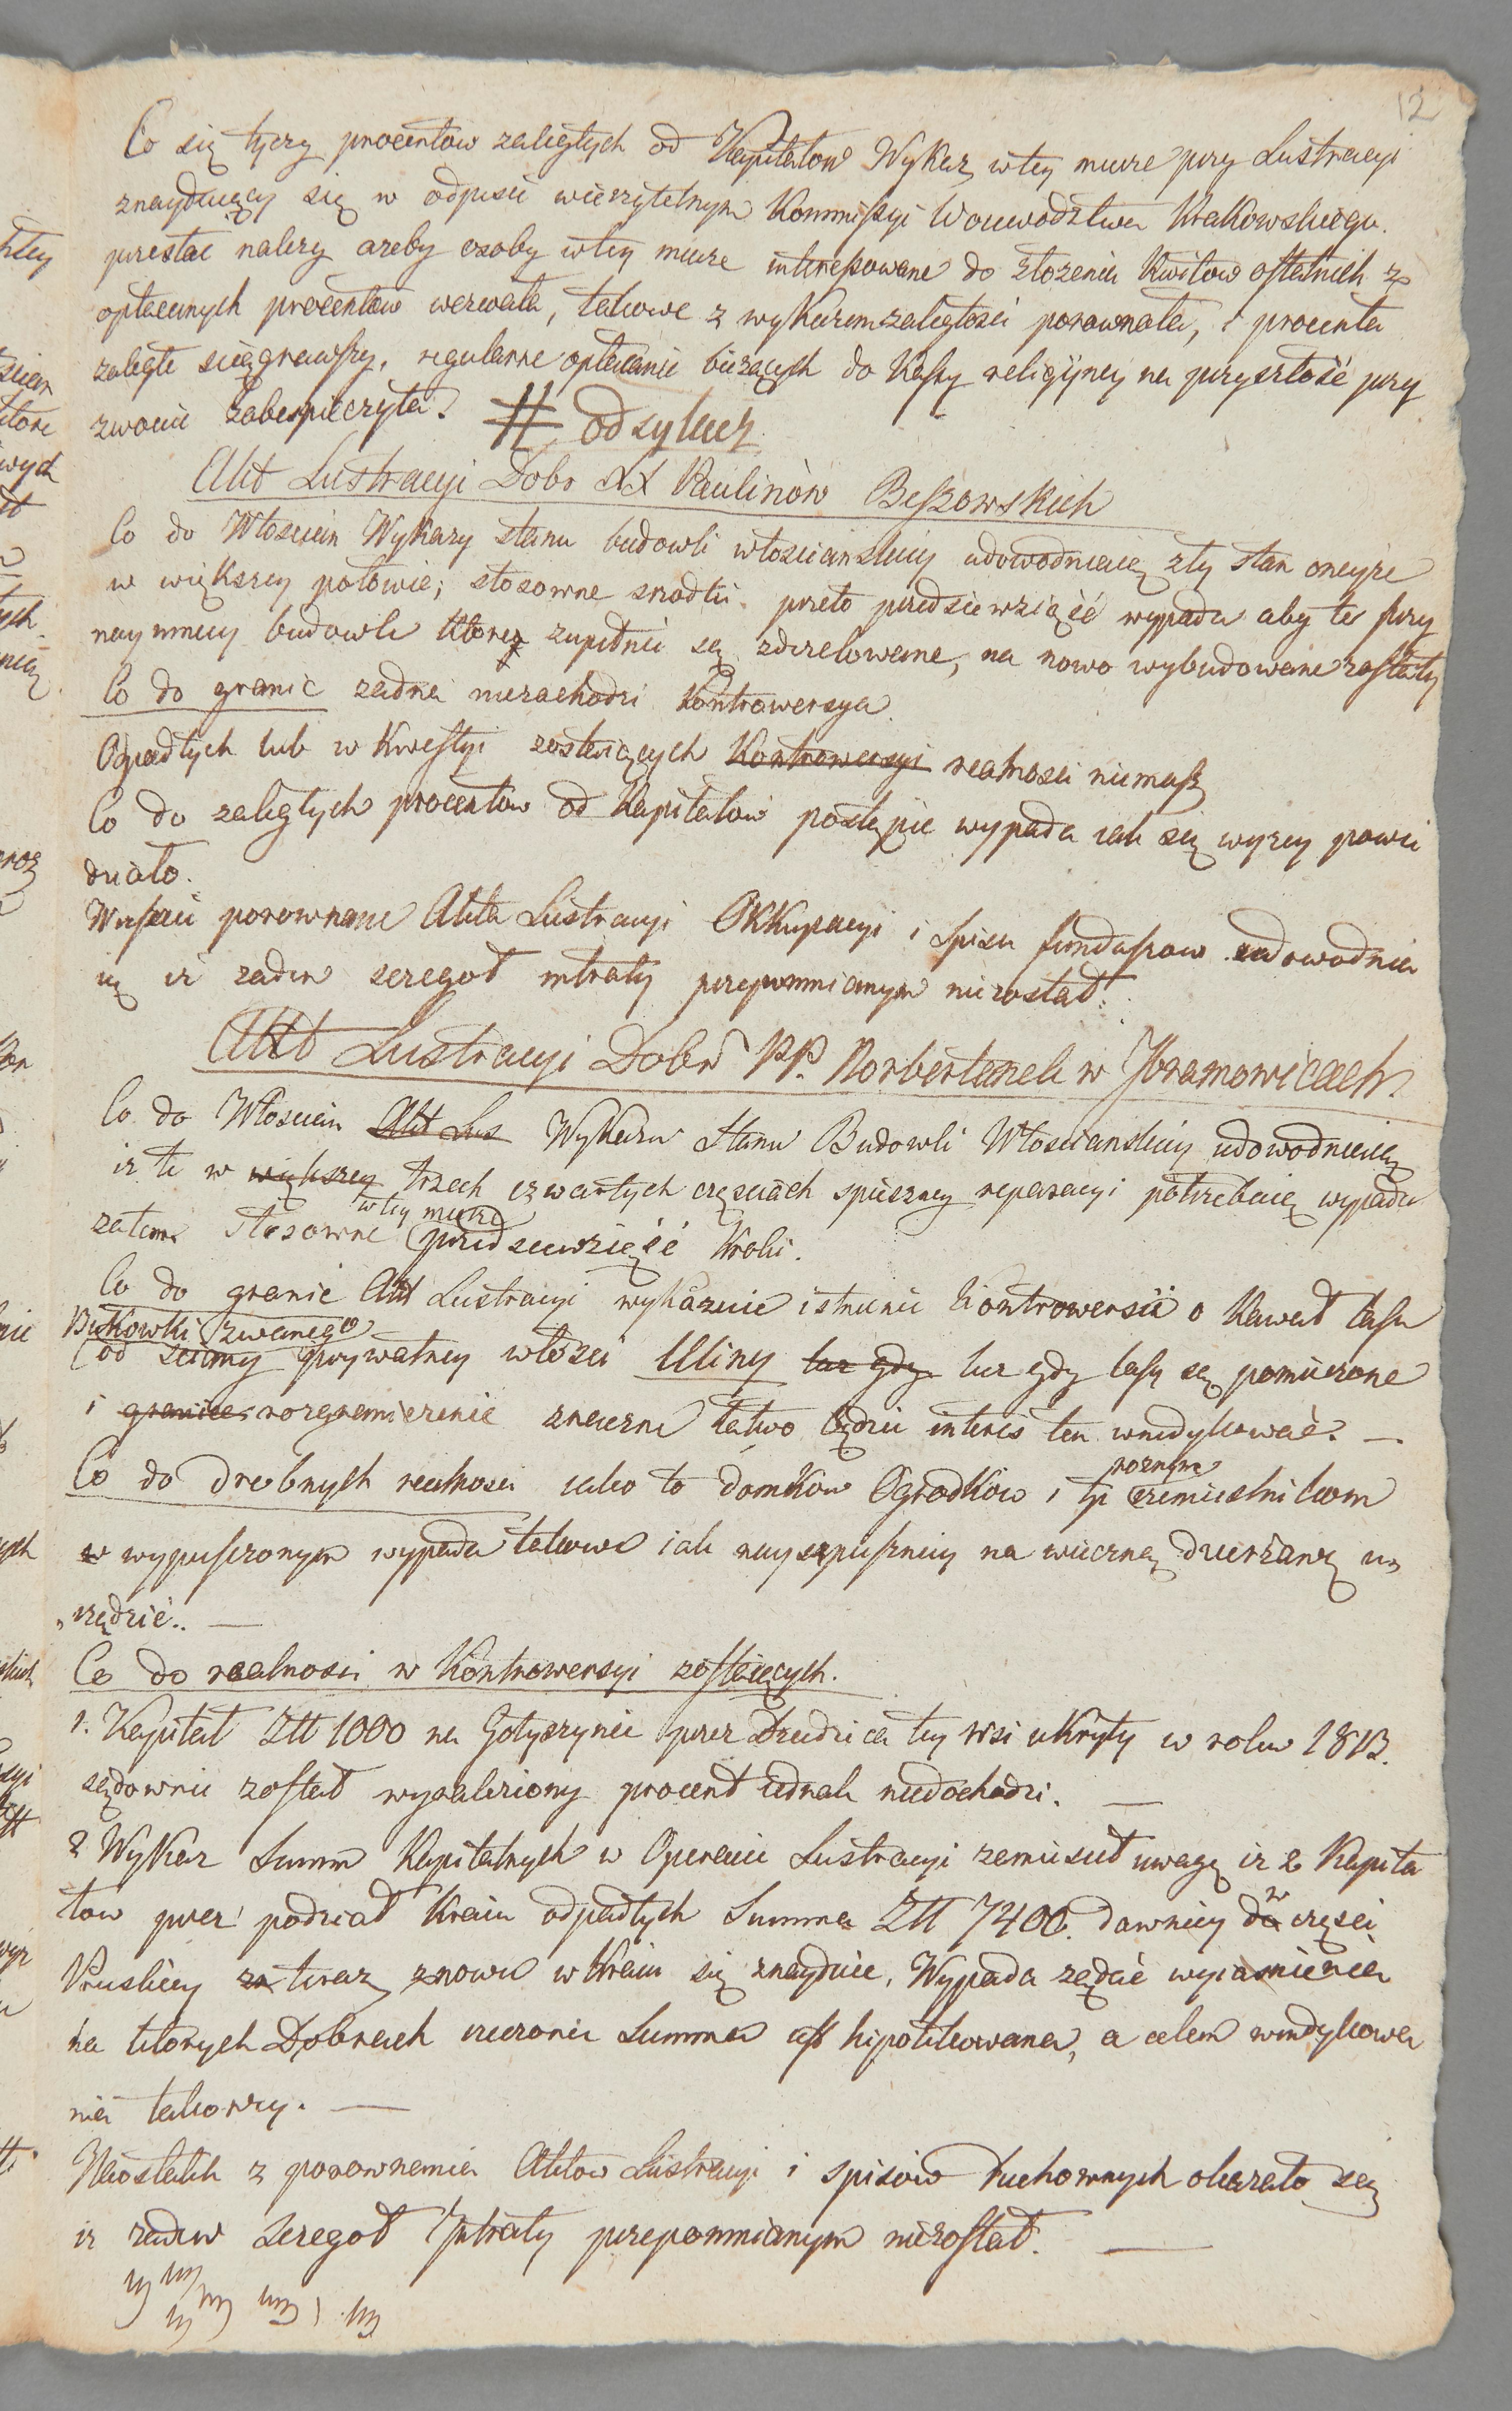 12
Co się tyczy procentow zaległych od Kapitałow Wykaz w tey mierze przy Lustracyi
znayduiący się w odpisie wierzytelnym Kommissyi Woiewodztwa Krakowskiego.
przesłac nalezy azeby osoby w tey mierze interessowane do złozenia Kwitow ostatnich z
opłaconych procentow wezwała, takowe z wykazem zaległosci porownała, i procenta
zaległe sciągnąwszy, regularne opłacanie biezących do Kassy religiyney na przyszłość przy
zwoicie zabespieczyła. # odsyłacz
Akt Lustracyi Dobr XX Paulinòw Beszowskich
Co do Włoscian Wykazy stanu budowli włosciańskiey udowodniaią zły stan oneyze
w większey połowie; stosowne srzodki przeto przedsiewziąść wypada aby te przy
naymniey budowle ktore zupełnie są zdezelowane, na nowo wybudowane zostały
Co do granic zadna niezachodzi Kontrowersya.
Opadłych lub w Kwestyi zostaiących Kontrowersyi realnosci niemasz
Co do zaległych procentow od Kapitałow postąpic wypada iak się wyzey powie
działo.
Wreszcie porownanie Akta Lustracyi Okkupacyi i Spisu funduszow udowodnia
ią iż zaden szczegoł intraty przepomnianym niezostał.
Akt Lustracyi Dobr PP. Norbertanek w Jbramowicach
Co do Włoscian Akt Lus Wykazu Stanu Budowli Włoscianskiey udowodniaią
iz te w większey trzech czwartych częsciach spieszney reparacyi potrzebuią wypada
w tey mierze
zatem stosowne przedsiewziąść Kroki.
Co do granic Akt Lustracyi wykazuie istnienie Kontrowersii o Kawał lasu
Bukowki zwanego
od sciany prywatney włosci Uliny lecz gdy lecz gdy lasy są pomierzone
i granice rozgraniczenie znaczne łatwo będzie interes ten windykować. —
Co do drobnych realnosci iako to domkow Ogrodkow i tp roznym rzemieslnikom
w wypuszczonym wypada takowe iak nayspieszniey na wieczną dzierżawę u„
„rządzić.. —
Co do realnosci w Kontrowersyi zostaiących.
1. Kapitał Złł 1000 na Gołyszynie przez Dziedzica tey wsi ukryty w roku 1813.
sądownie został wynaleziony procent iednak niedochodzi. —
2 Wykaz Summ Kapitalnych w Operacie Lustracyi zamiescił uwagę iz z Kapita
łow przez podział Kraiu odpadłych Summa Złł 7400. dawniey do w częsci
Pruskiey za teraz znowu w Kraiu się znayduie. Wypada żądać wyiasnienia
na ktorych Dobrach rzeczona Summa iest hipotekowana, a celem windykowa
nia takowey. —
Naostatek z porownania Aktow Lustracyi i spisow duchownych okazało się
iz zaden szczegoł Jntraty przepomnianym niezostał. —